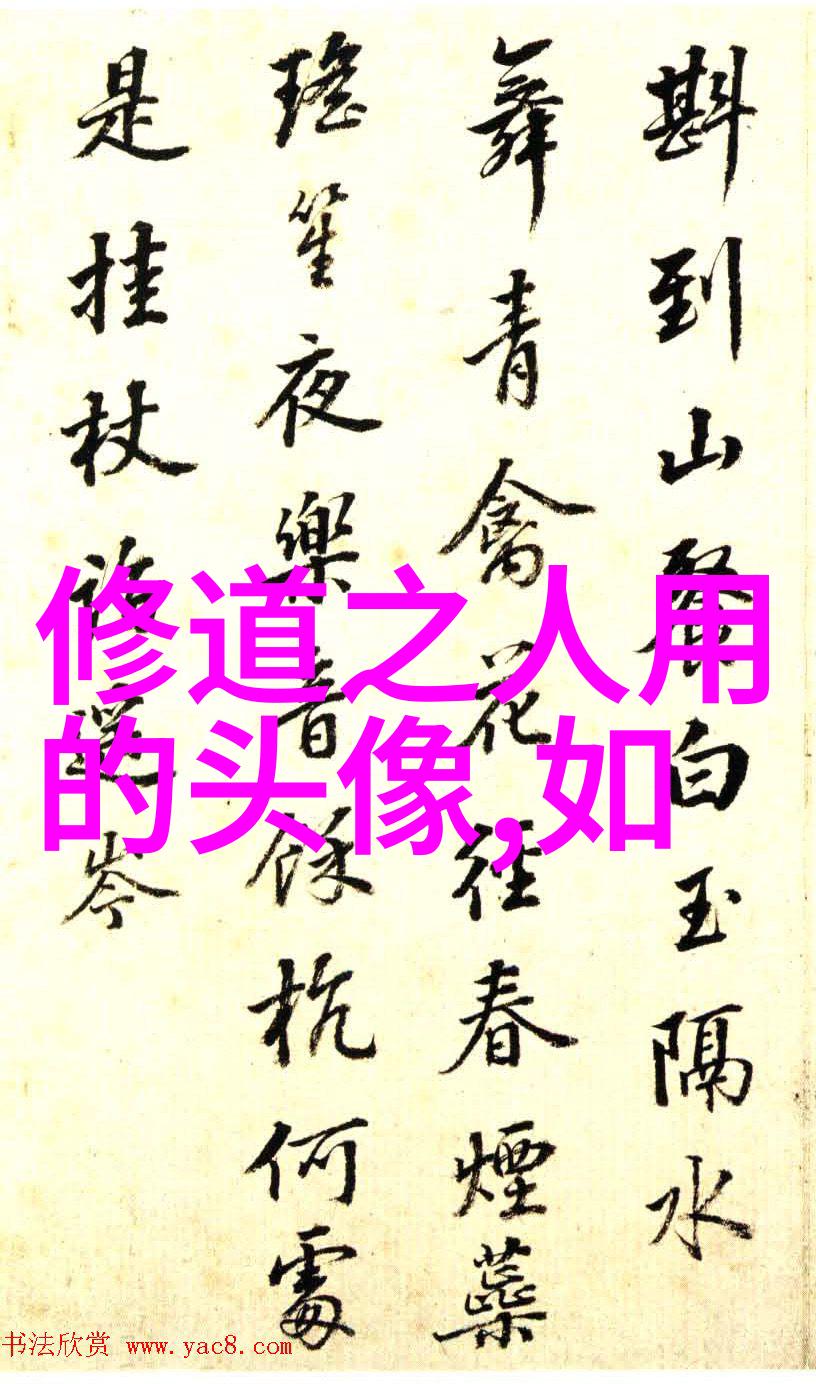 斟到山白玉隔水
舞青禽花徑春煙蘂
瑤笙夜樂音餘杭何處
是挂杖岑
修道之人用
的头像,如
书法欣赏 www.yac8.com